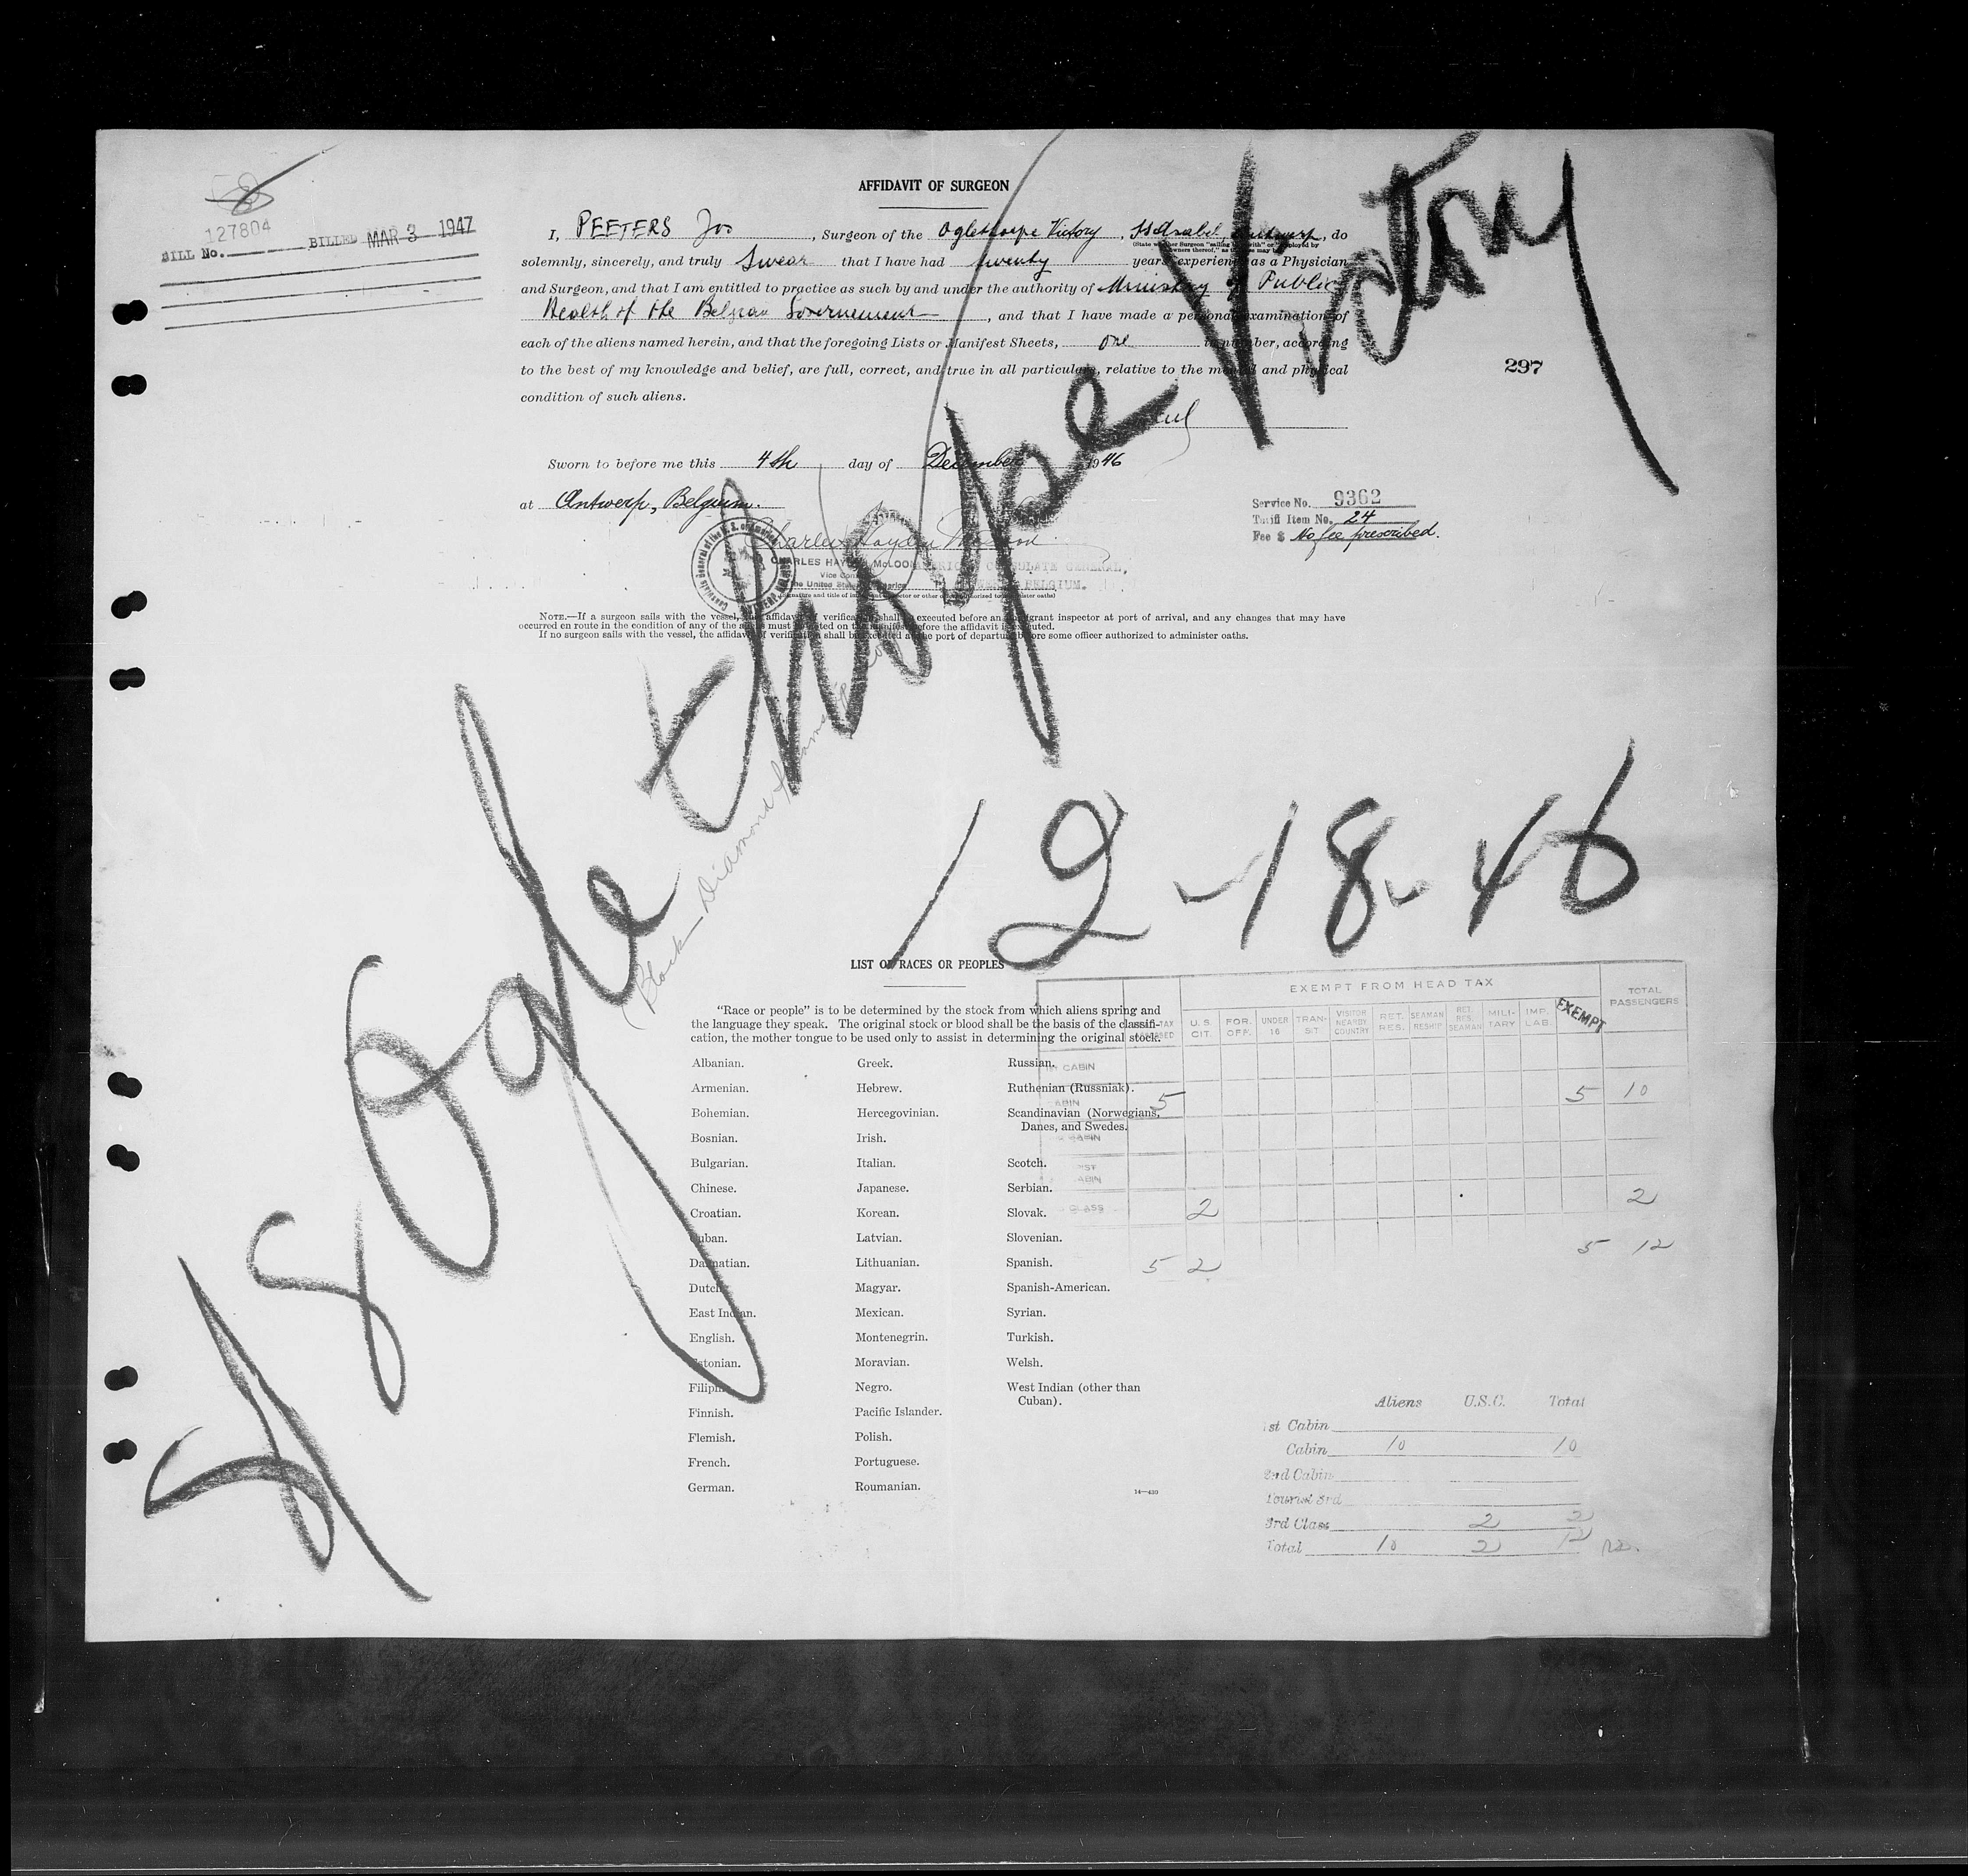 58
BILL No. 127804 BILLED MAR 3 1947
AFFIDAVIT OF SURGEON
I, PEETERS Jos, Surgeon of the Oglethorpe Victory, Antwerp, do
solemnly, sincerely, and truly swear that I have had twenty years' experience as a Physician
and Surgeon, and that I am entitled to practice as such by and under the authority of Ministry of Public
Health of the Belgian Governement, and that I have made a personal examination of
each of the aliens named herein, and that the foregoing Lists or Manifest Sheets, one in number, according
to the best of my knowledge and belief, are full, correct, and true in all particulars, relative to the mental and physical
condition of such aliens.
297
Sworn to before me this 4th day of December 1946
at Antwerp, Belgium.
Service No. 9362
Tariff Item No. 24
Fee $ No fee prescribed.
CHARLES HAYDEN McLOON AMERICAN CONSULATE GENERAL,
Vice Consul
the United States of America ANTWERP, BELGIUM.
NOTE.—If a surgeon sails with the vessel, the affidavit of verification shall be executed before an immigrant inspector at port of arrival, and any changes that may have
occurred en route in the condition of any of the aliens must be noted on the manifest before the affidavit is executed.
If no surgeon sails with the vessel, the affidavit of verification shall be executed at the port of departure before some officer authorized to administer oaths.
SS Oglethorpe Victory
12-18-46
(Black Diamond
LIST OF RACES OR PEOPLES
"Race or people" is to be determined by the stock from which aliens spring and
the language they speak. The original stock or blood shall be the basis of the classifi-
cation, the mother tongue to be used only to assist in determining the original stock.
Albanian. Greek. Russian.
Armenian. Hebrew. Ruthenian (Russniak).
Bohemian. Hercegovinian. Scandinavian (Norwegians,
Danes, and Swedes.
Bosnian. Irish.
Bulgarian. Italian. Scotch.
Chinese. Japanese. Serbian.
Croatian. Korean. Slovak.
Cuban. Latvian. Slovenian.
Dalmatian. Lithuanian. Spanish.
Dutch. Magyar. Spanish-American.
East Indian. Mexican. Syrian.
English. Montenegrin. Turkish.
Estonian. Moravian. Welsh.
Filipino. Negro. West Indian (other than
Cuban).
Finnish. Pacific Islander.
Flemish. Polish.
French. Portuguese.
German. Roumanian.
14—430
EXEMPT FROM HEAD TAX
TAX U. S. CIT. FOR. OFF. UNDER 16 TRAN-SIT VISITOR NEARBY COUNTRY RET. RES. SEAMAN RESHIP RET. RES. SEAMAN MILI-TARY IMP. LAB. EXEMPT TOTAL PASSENGERS
CABIN
CABIN 5 5 10
CABIN
CABIN
CLASS 2 2
5 2 5 12
Aliens U.S.C. Total
1st Cabin
Cabin 10 10
2nd Cabin
Tourist 3rd
3rd Class 2 2
Total 10 2 12